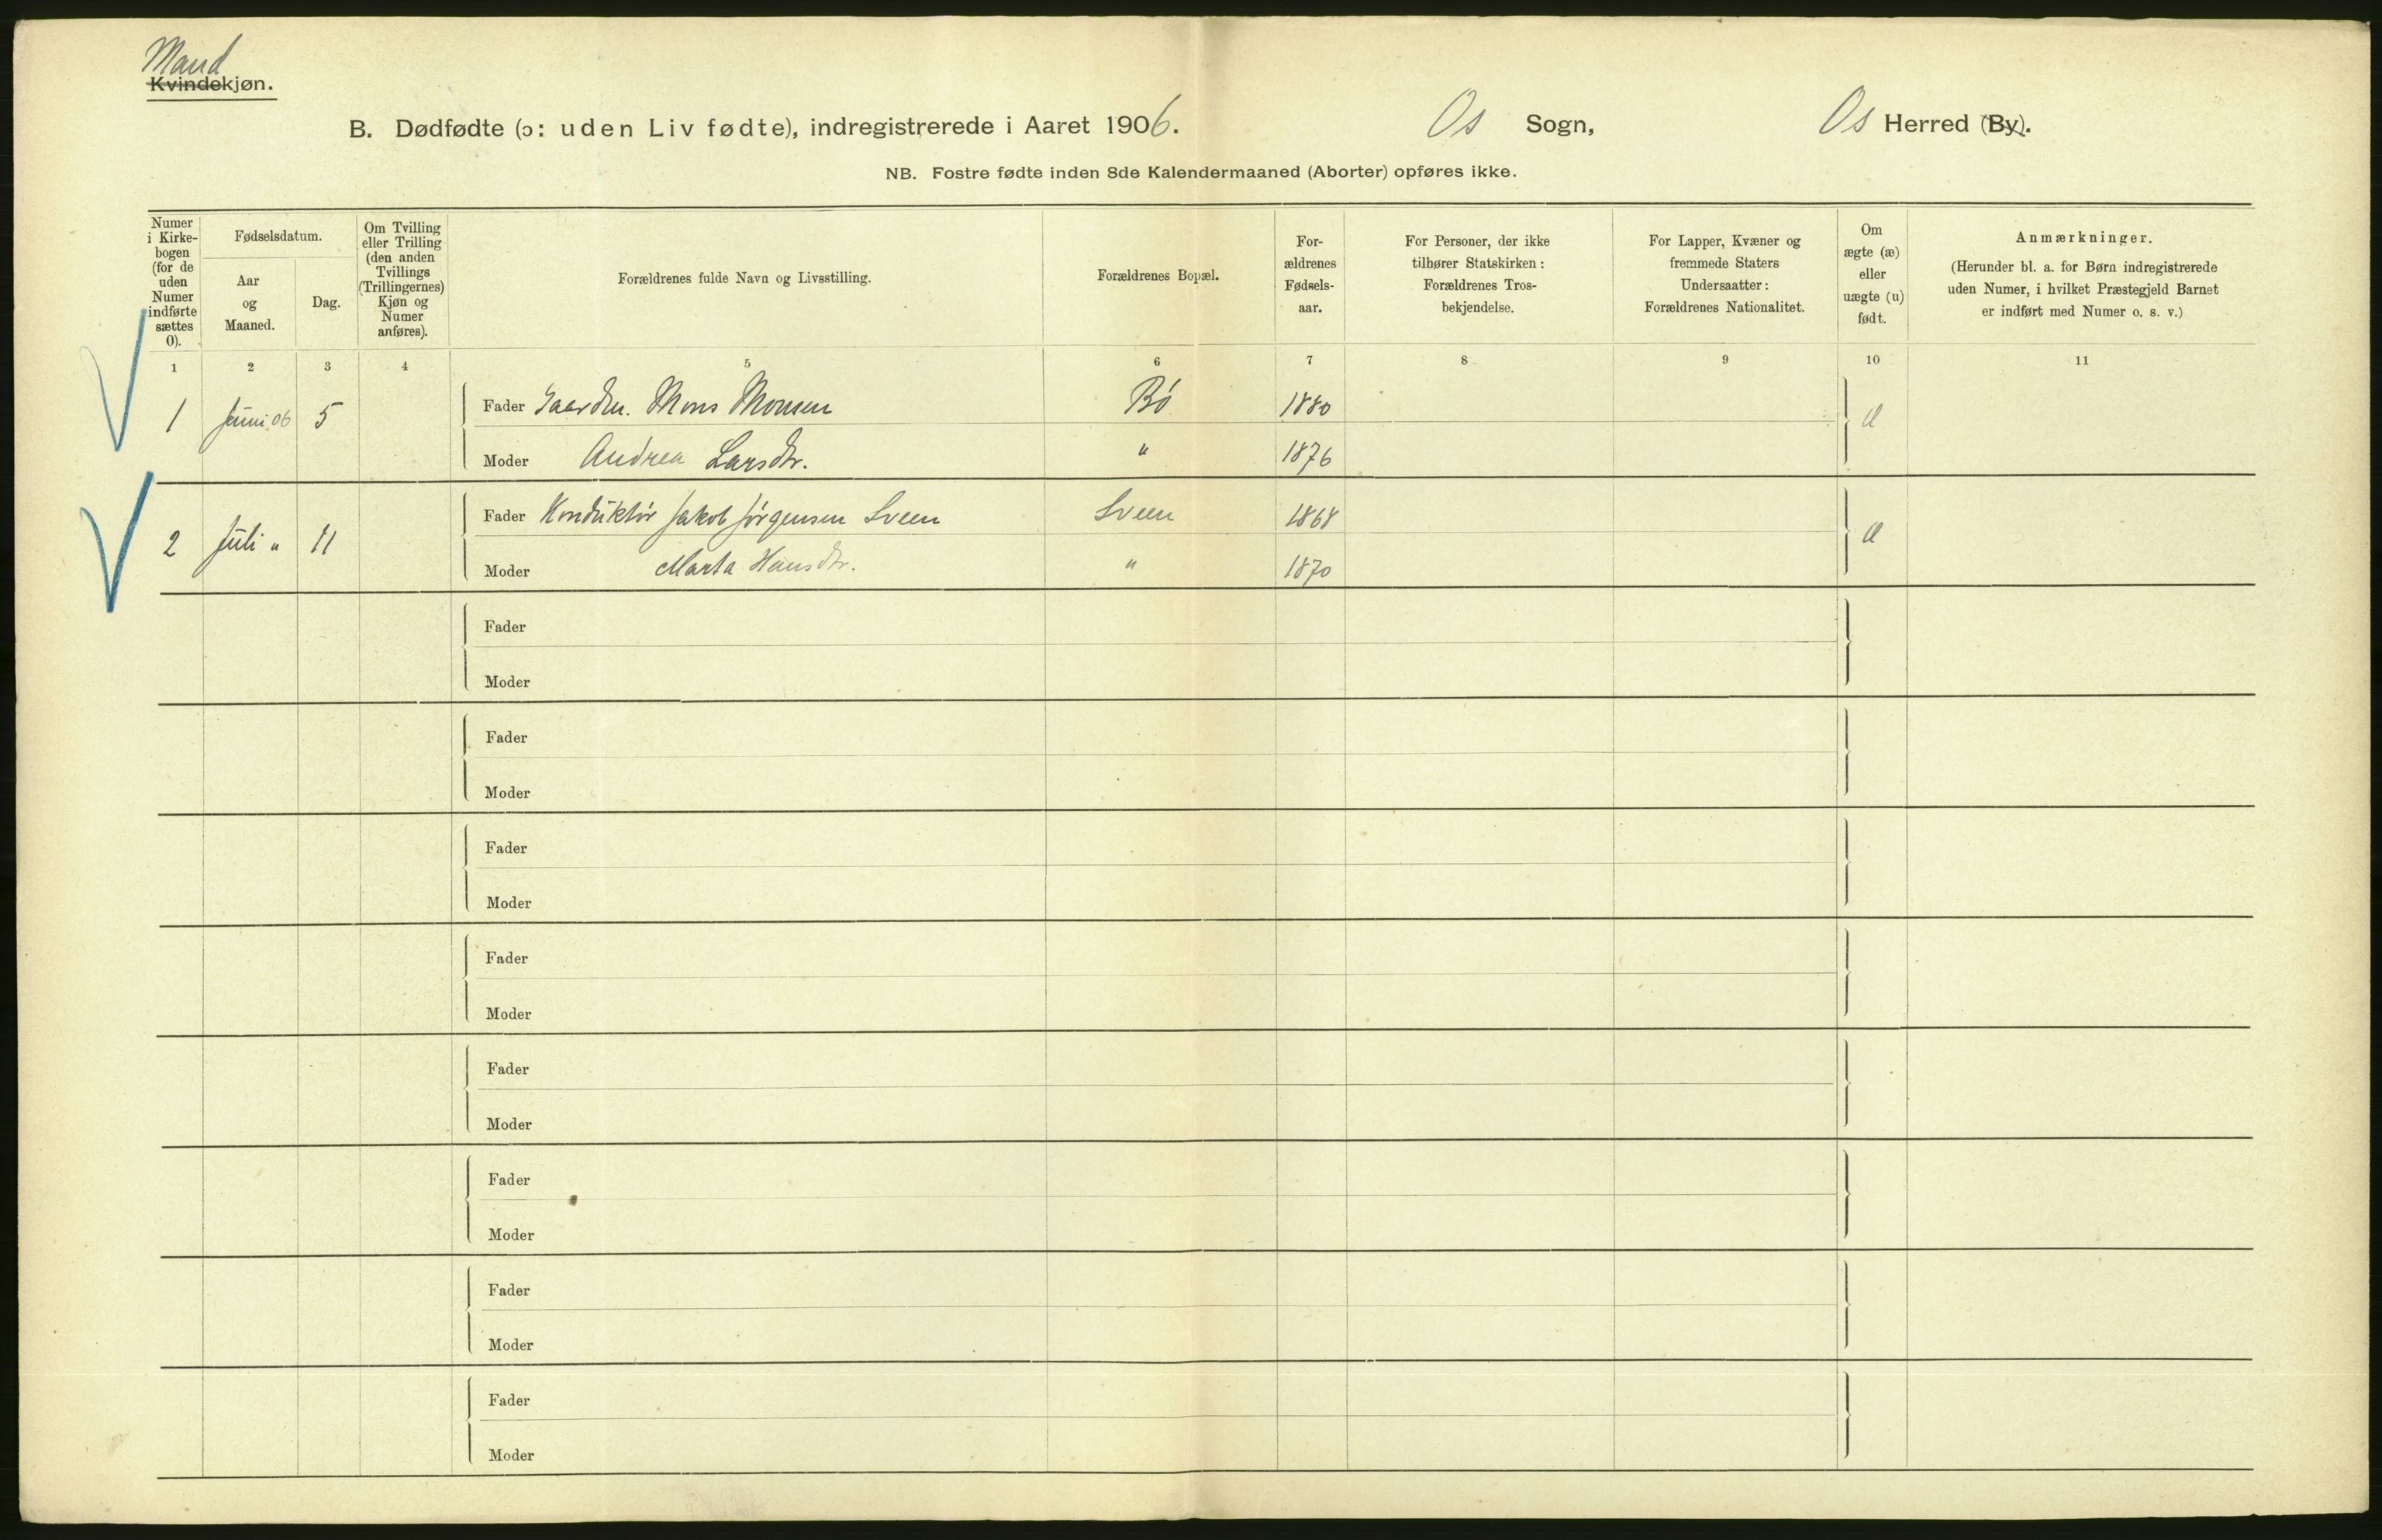 Mand
Kvindekjøn.
B. Dødfødte (ɔ: uden Liv fødte), indregistrerede i Aaret 1906. Os Sogn, Os Herred (By).
NB. Fostre fødte inden 8de Kalendermaaned (Aborter) opføres ikke.
Numer
i Kirke-
bogen
(for de
uden
Numer
indførte
sættes
0).
Fødselsdatum.
Aar
og
Maaned.
Dag.
Om Tvilling
eller Trilling
(den anden
Tvillings
(Trillingernes)
Kjøn og
Numer
anføres).
Forældrenes fulde Navn og Livsstilling.
Forældrenes Bopæl.
For-
ældrenes
Fødsels-
aar.
For Personer, der ikke
tilhører Statskirken:
Forældrenes Tros-
bekjendelse.
For Lapper, Kvæner og
fremmede Staters
Undersaatter:
Forældrenes Nationalitet.
Om
ægte (æ)
eller
uægte (u)
født.
Anmærkninger.
(Herunder bl. a. for Børn indregistrerede
uden Numer, i hvilket Præstegjeld Barnet
er indført med Numer o. s. v.)
1 2 3 4 5 6 7 8 9 10 11
Fader Gaardm. Mons Monsen Bø 1880
1 Juni 06 5 æ
Moder Andrea Larsdtr. " 1876
Fader Konduktør Jakob Jørgensen Sveen Sveen 1868
2 Juli " 11 æ
Moder Marta Hansdtr. " 1870
Fader
Moder
Fader
Moder
Fader
Moder
Fader
Moder
Fader
Moder
Fader
Moder
Fader
Moder
Fader
Moder